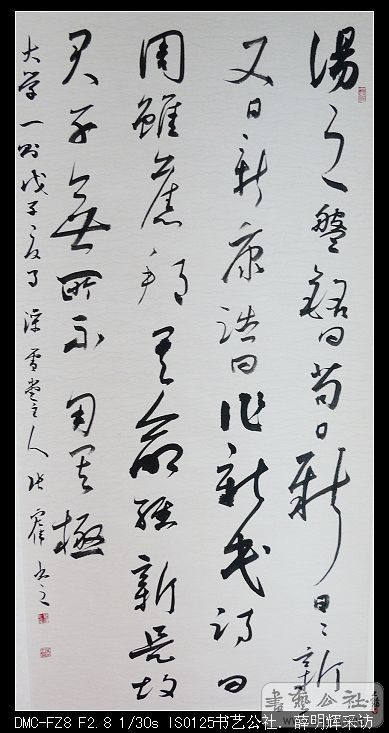 湯之盤銘曰苟日新日日新
又日新康誥曰作新民詩曰
周雖舊邦其命維新是故
君子無所不用其極
大学一則戊子夏月深雪堂主人張霍書之
書藝公社
DMC-FZ8 F2.8 1/30s ISO125书艺公社．薛明辉采访